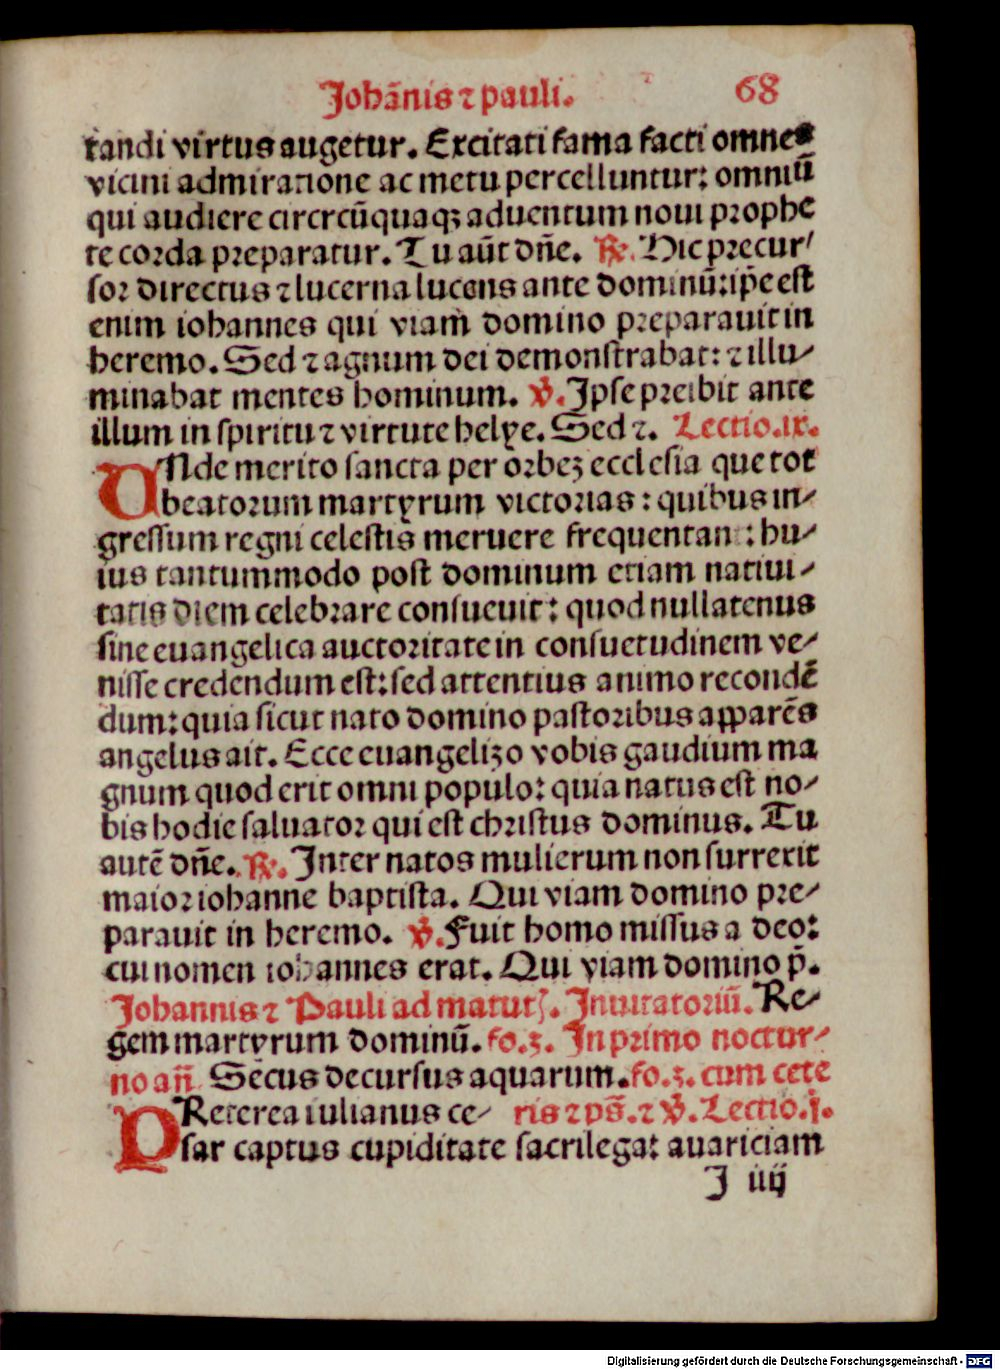 Johãnis ⁊ pauli. 68
tandi virtus augetur. Excitati fama facti omnes
vicini admiratione ac metu percelluntur: omniũ
qui audiere circrcũquaqꝫ aduentum noui prophe
te corda preparatur. Tu aũt dñe. ℟. Hic precur⸗
sor directus ⁊ lucerna lucens ante dominũ: ip̃e est
enim iohannes qui viam̃ domino preparauit in
heremo. Sed ⁊ agnum dei demonstrabat: ⁊ illu⸗
minabat mentes hominum. ℣. Ipse preibit ante
illum in spiritu ⁊ virtute helye. Sed ⁊. Lectio.ix.
UNde merito sancta per orbeꝫ ecclesia que tot
beatorum martyrum victorias: quibus in⸗
gressum regni celestis meruere frequentan : hu⸗
ius tantummodo post dominum etiam natiui⸗
tatis diem celebrare consueuit: quod nullatenus
sine euangelica auctoritate in consuetudinem ve⸗
nisse credendum est: sed attentius animo recondẽ
dum: quia sicut nato domino pastoribus apparẽs
angelus ait. Ecce euangelizo vobis gaudium ma
gnum quod erit omni populo: quia natus est no⸗
bis hodie saluator qui est christus dominus. Tu
autẽ dñe. ℟. Inter natos mulierum non surrexit
maior iohanne baptista. Qui viam domino pre⸗
parauit in heremo. ℣. Fuit homo missus a deo:
cui nomen iohannes erat. Qui viam domino p̃.
Johannis ⁊ Pauli ad matut. Inuitatoriũ. Re⸗
gem martyrum dominũ. fo.3. In primo noctur⸗
no añ Secus decursus aquarum. fo.3. cum cete
PReterea iulianus ce⸗ ris ⁊ ps̃. ⁊ ℣. Lectio.j.
sar captus cupiditate sacrilega: auariciam
J iiij
Digitalisierung gefördert durch die Deutsche Forschungsgemeinschaft - DFG